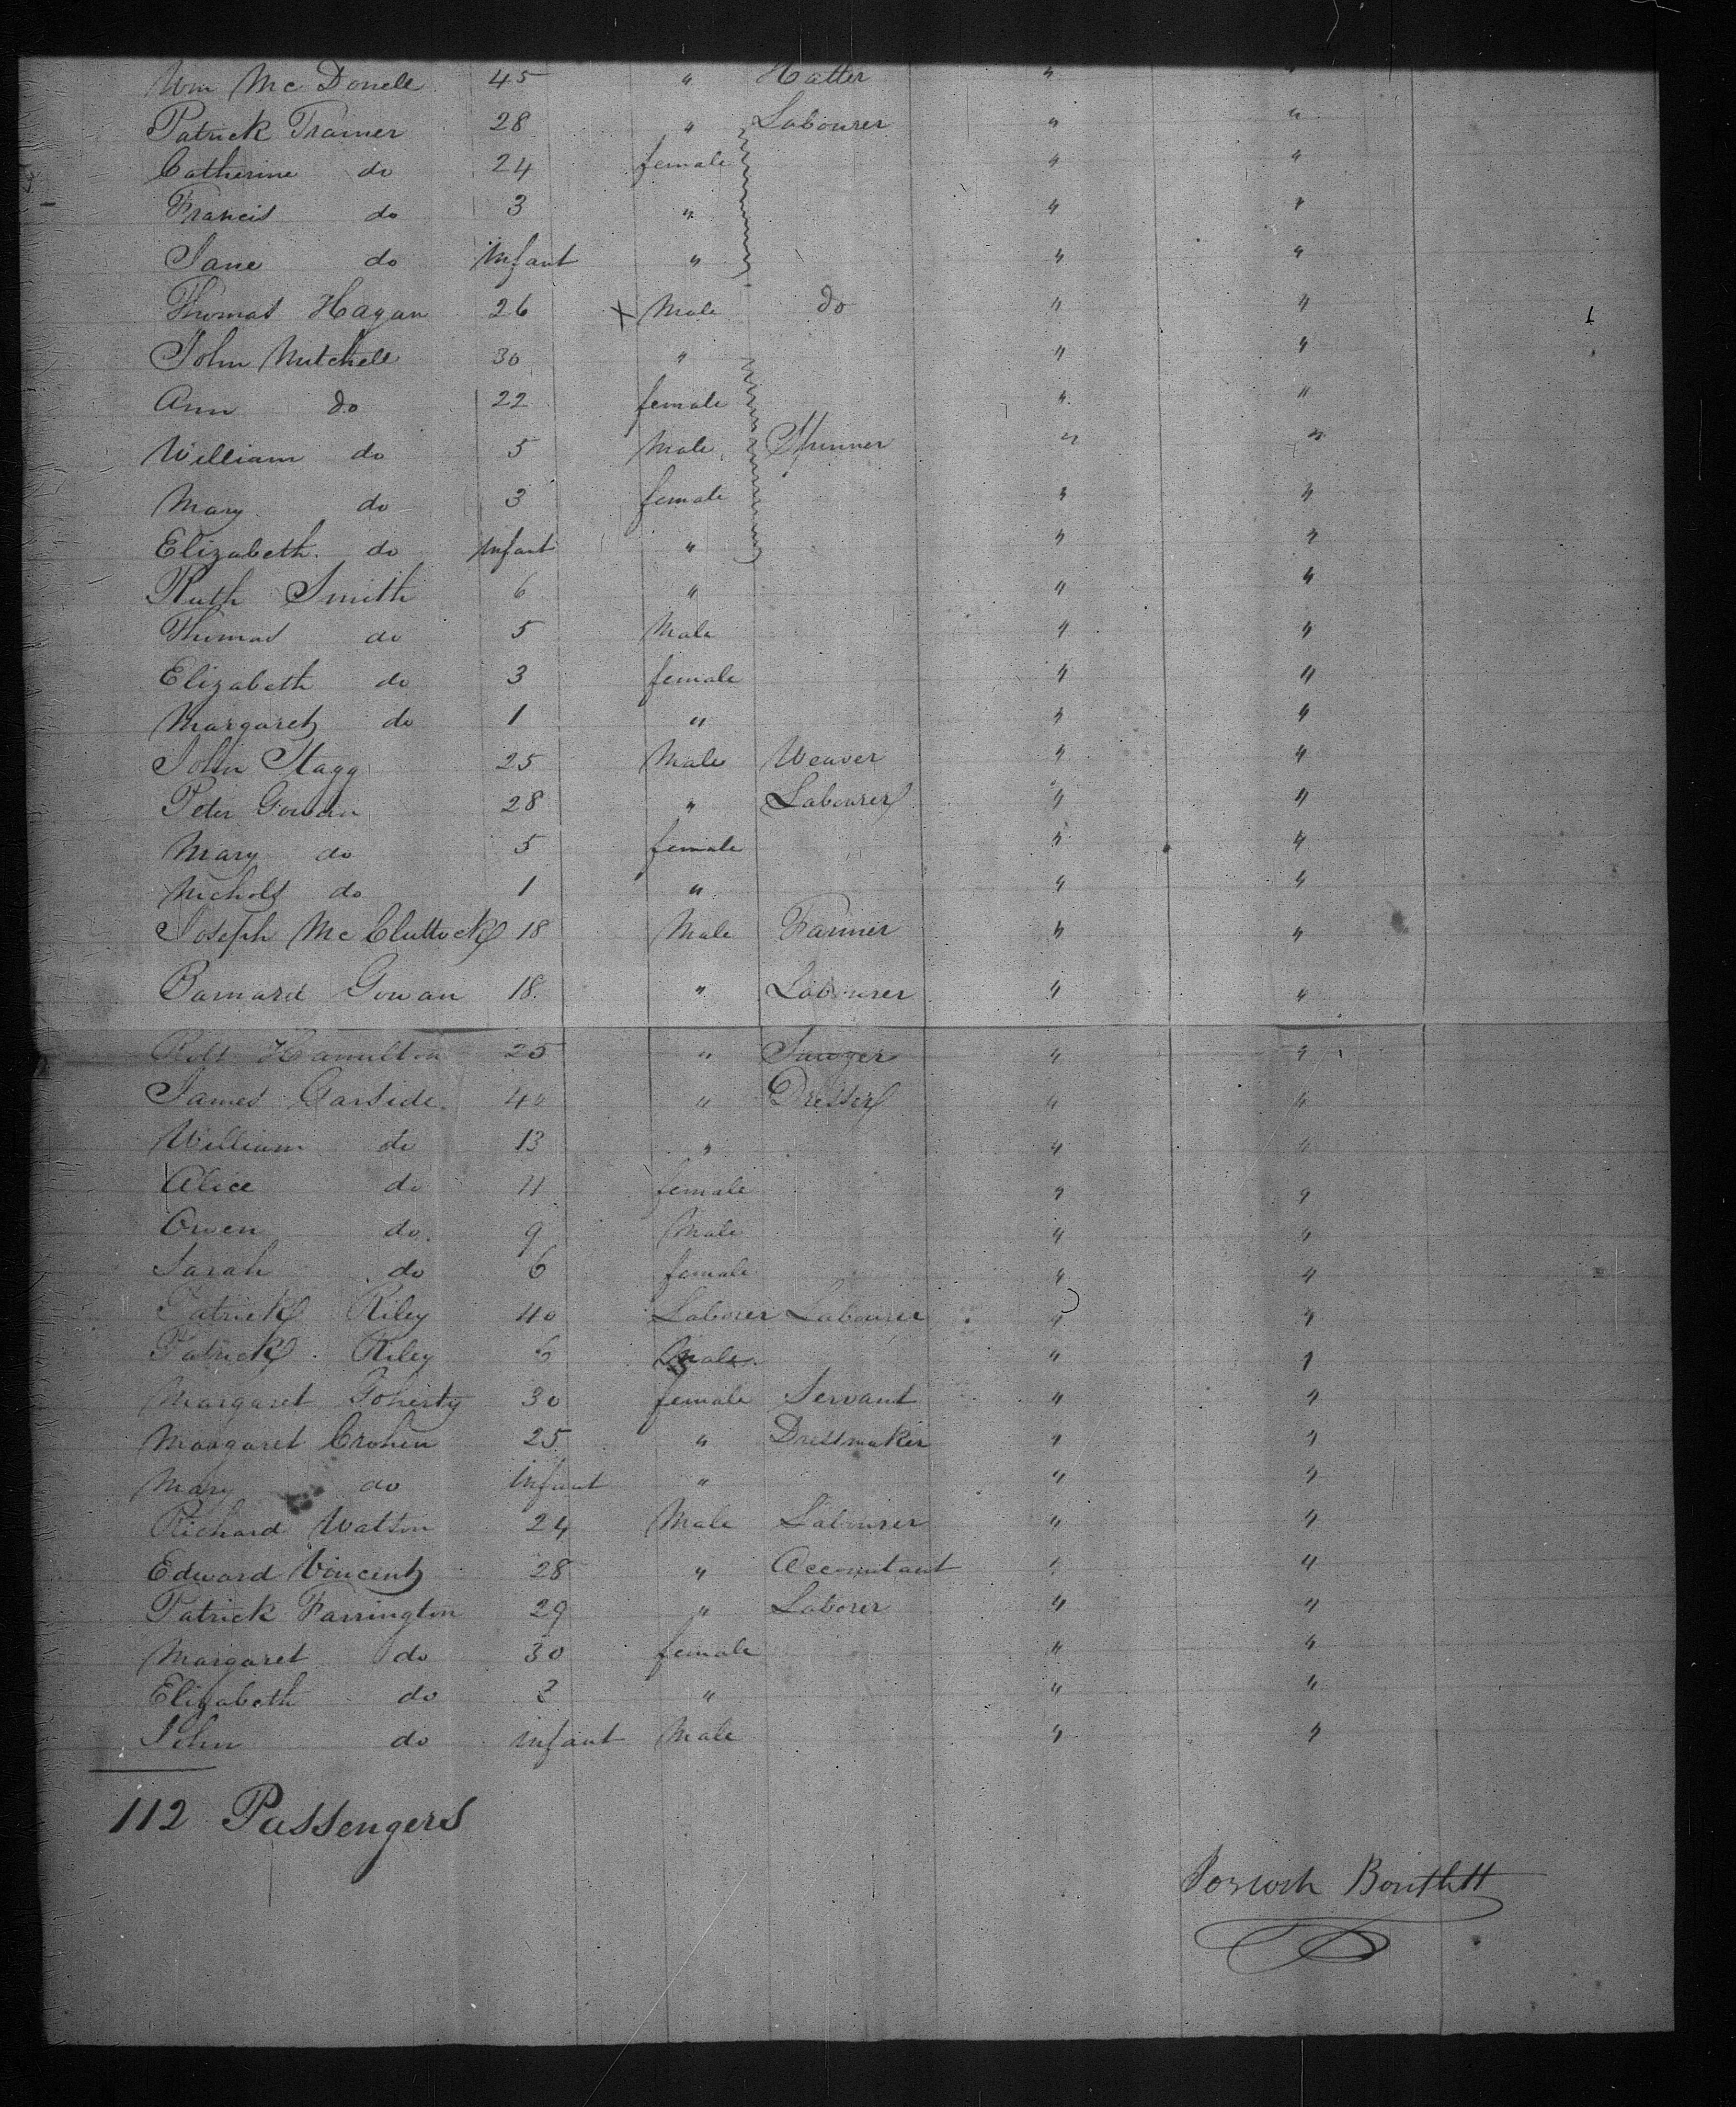 Wm Mc Donell 45 " Hatter " "
Patrick Trainer 28 " Labourer " "
Catherine do 24 female " "
Francis do 3 " " "
Jane do infant " " "
Thomas Hagan 26 X Male do " "
John Mitchell 30 " " "
Ann do 22 female " "
William do 5 Male Spinner " "
Mary do 3 female " "
Elizabeth do infant " " "
Ruth Smith 6 " " "
Thomas do 5 Male " "
Elizabeth do 3 female " "
Margaret do 1 " " "
John Stagg 25 Male Weaver " "
Peter Gowan 28 " Labourer " "
Mary do 5 female " "
Nichols do 1 " " "
Joseph Mc Cluttock 18 Male Farmer " "
Barnard Gowan 18 " Labourer " "
Robt Hamilton 25 " Sawyer " "
James Garside 40 " Dresser " "
William do 13 " " "
Alice do 11 female " "
Owen do 9 Male " "
Sarah do 6 female " "
Patrick Riley 40 Laborer Labourer " "
Patrick Riley 6 Male " "
Margaret Doherty 30 female Servant " "
Margaret Crohen 25 " Dressmaker " "
Mary do infant " " "
Richard Watson 24 Male Labourer " "
Edward Vincent 28 " Accountant " "
Patrick Farrington 29 " Laborer " "
Margaret do 30 female " "
Elizabeth do 2 " " "
John do infant Male " "
112 Passengers